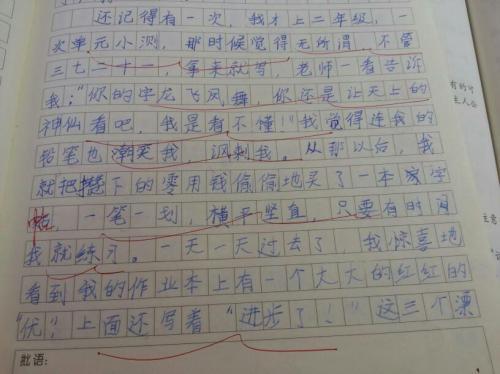 还记得有一次，我才上二年级，一
次单元小测，那时候觉得无所谓，不管
三七二十一，拿来就写，老师一看告诉
我："你的字龙飞凤舞，你还是让天上的
神仙看吧，我是看不懂！"我觉得连我的
铅笔也潮笑我，讽刺我。从那以后，我
就把攒下的零用钱偷偷地买了一本家字
帖，一笔一划，横平竖直，只要有时间
我就练习。一天一天过去了，我惊喜地
看到我的作业本上有一个大大的红红的
"优"，上面还写着"进步了！"这三个漂
批语：
有的可
主人公
主营